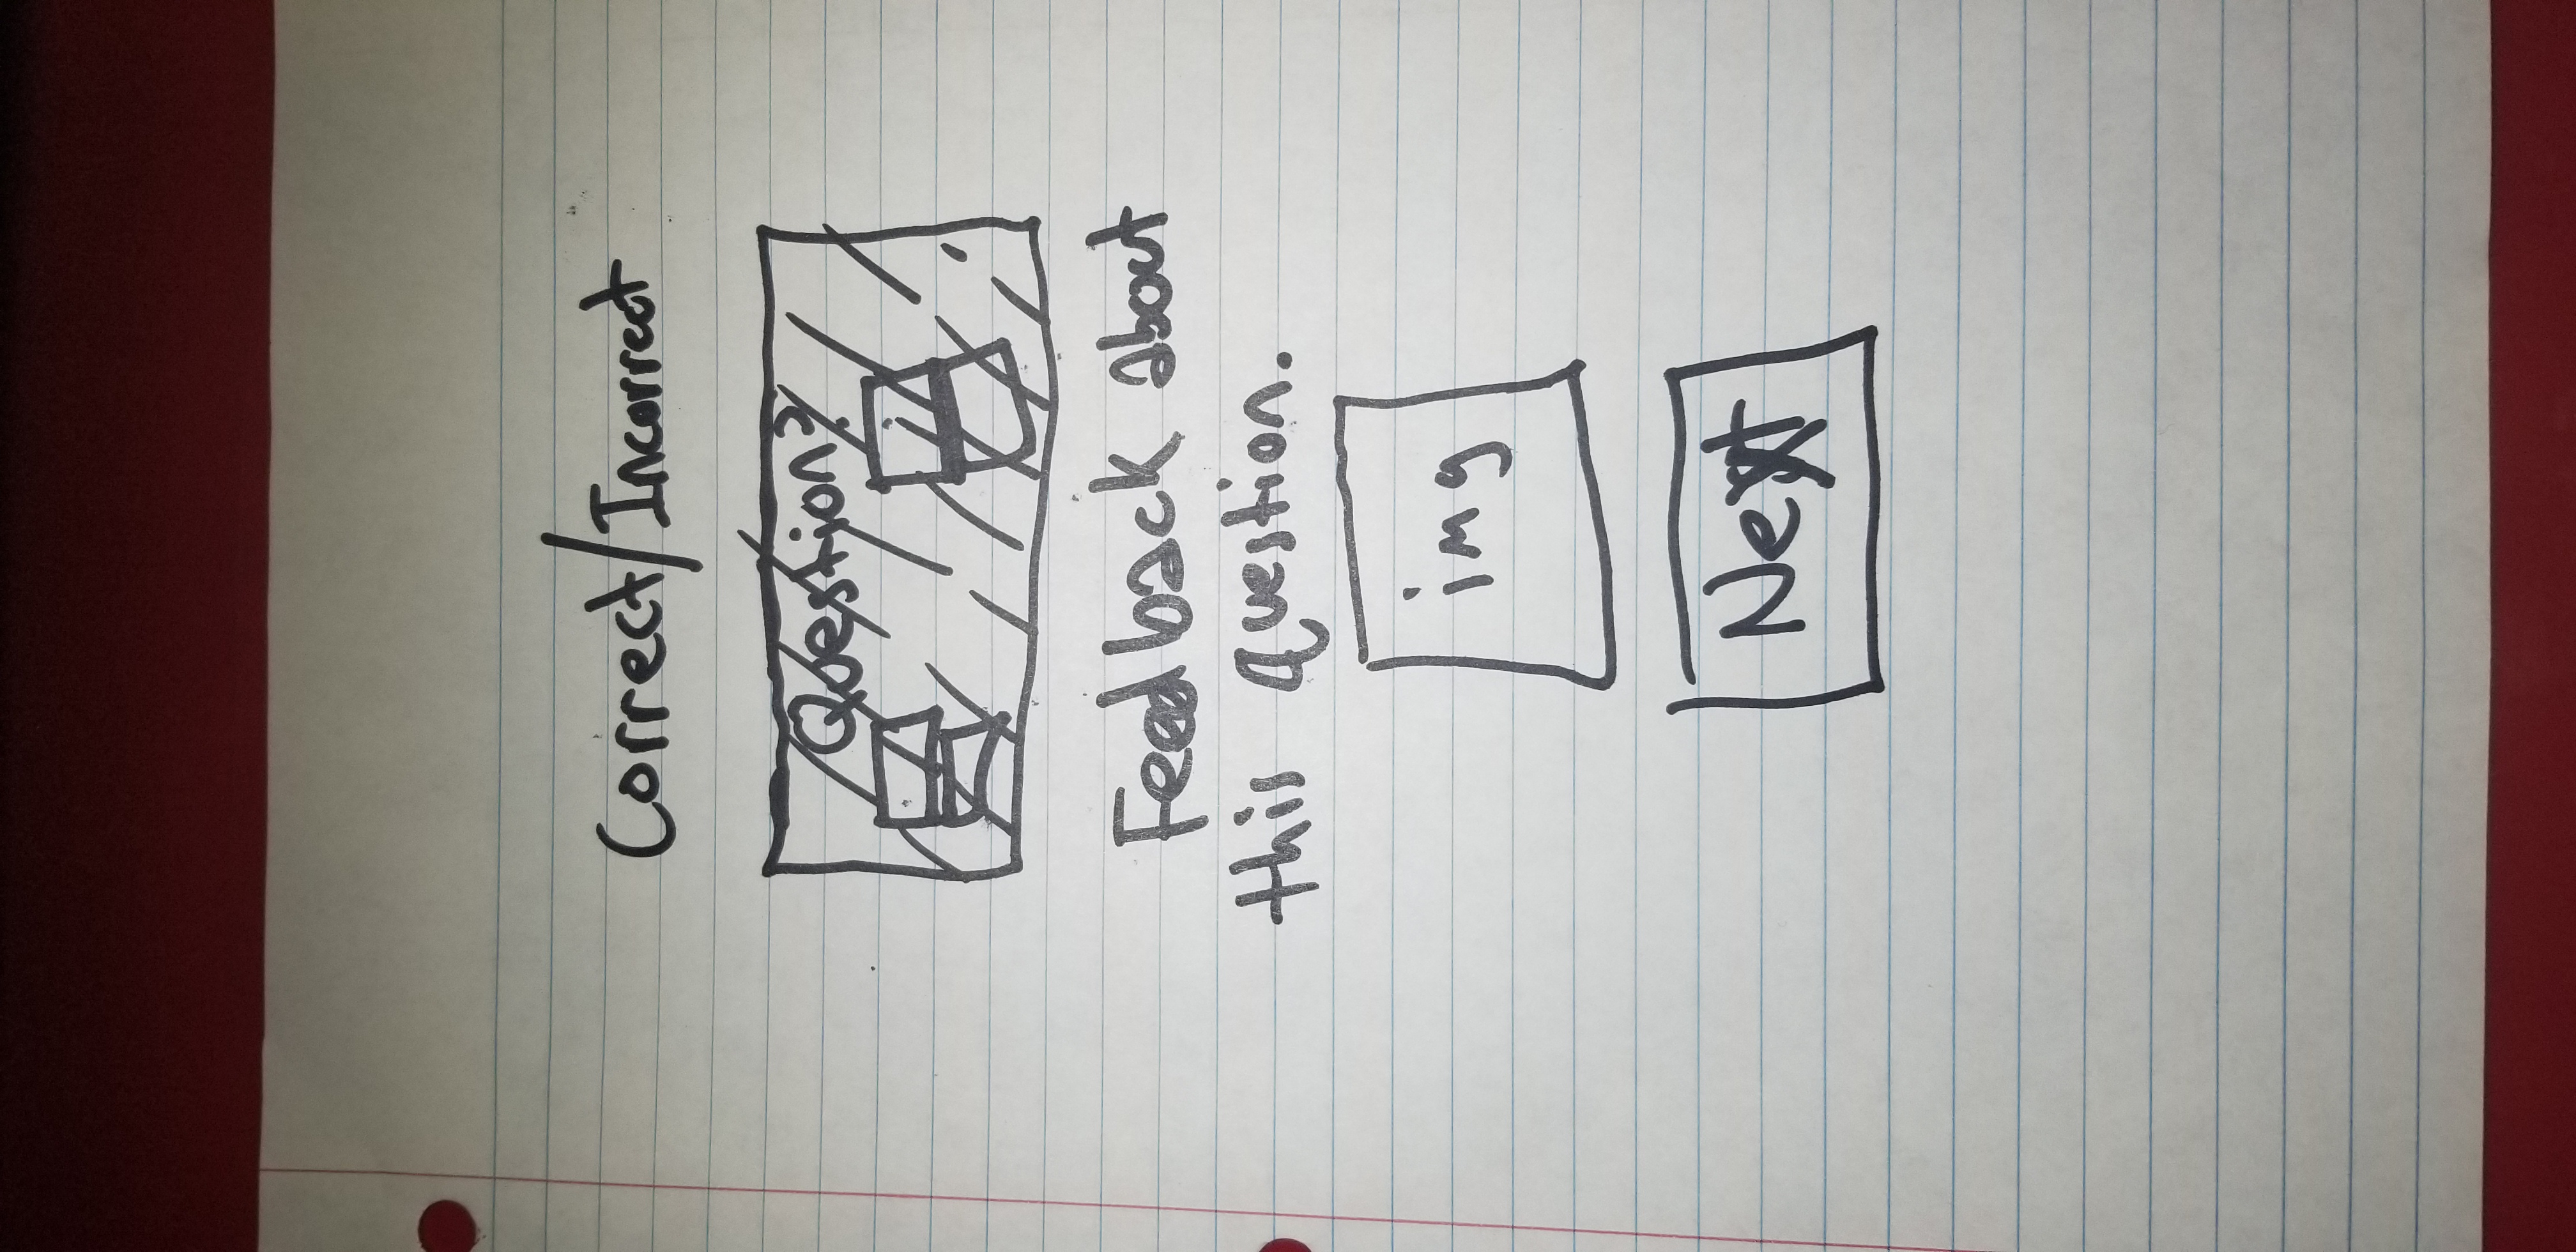 Correct/Incorrect
Question?
Feedback about
this question.
img
Next